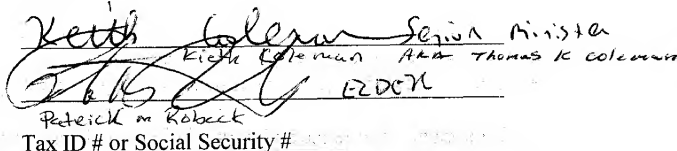 Keith Coleman Senior Minister
Kieth Coleman AKA Thomas K Coleman
ELDER
Patrick M Robeck
Tax ID # or Social Security #